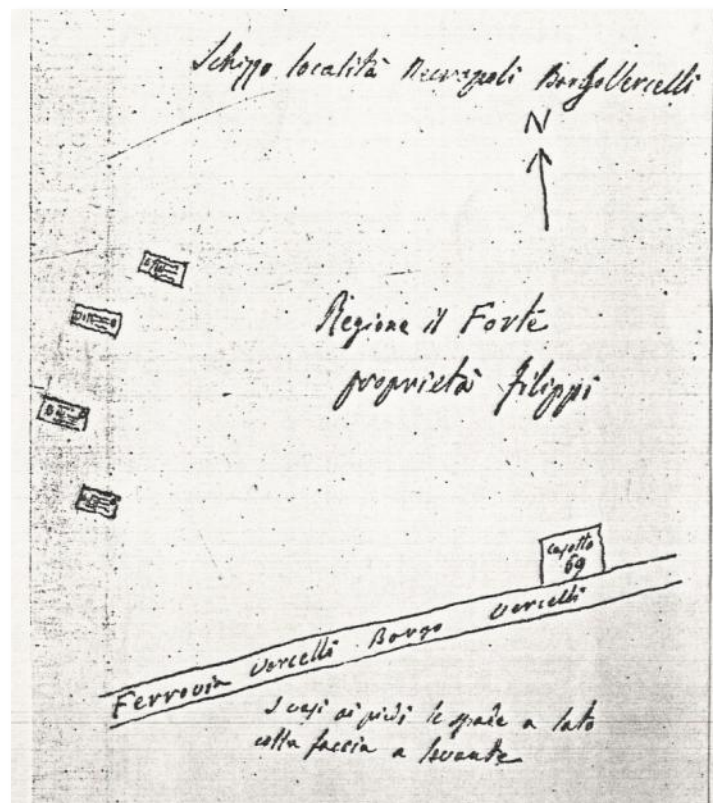 Schizzo località Necropoli Borgo Vercelli
N
Regione il Forte
proprietà Filippi
casotto
69
Ferrovia Vercelli Borgo Vercelli
I vasi ai piedi le spade a lato
colla faccia a levante